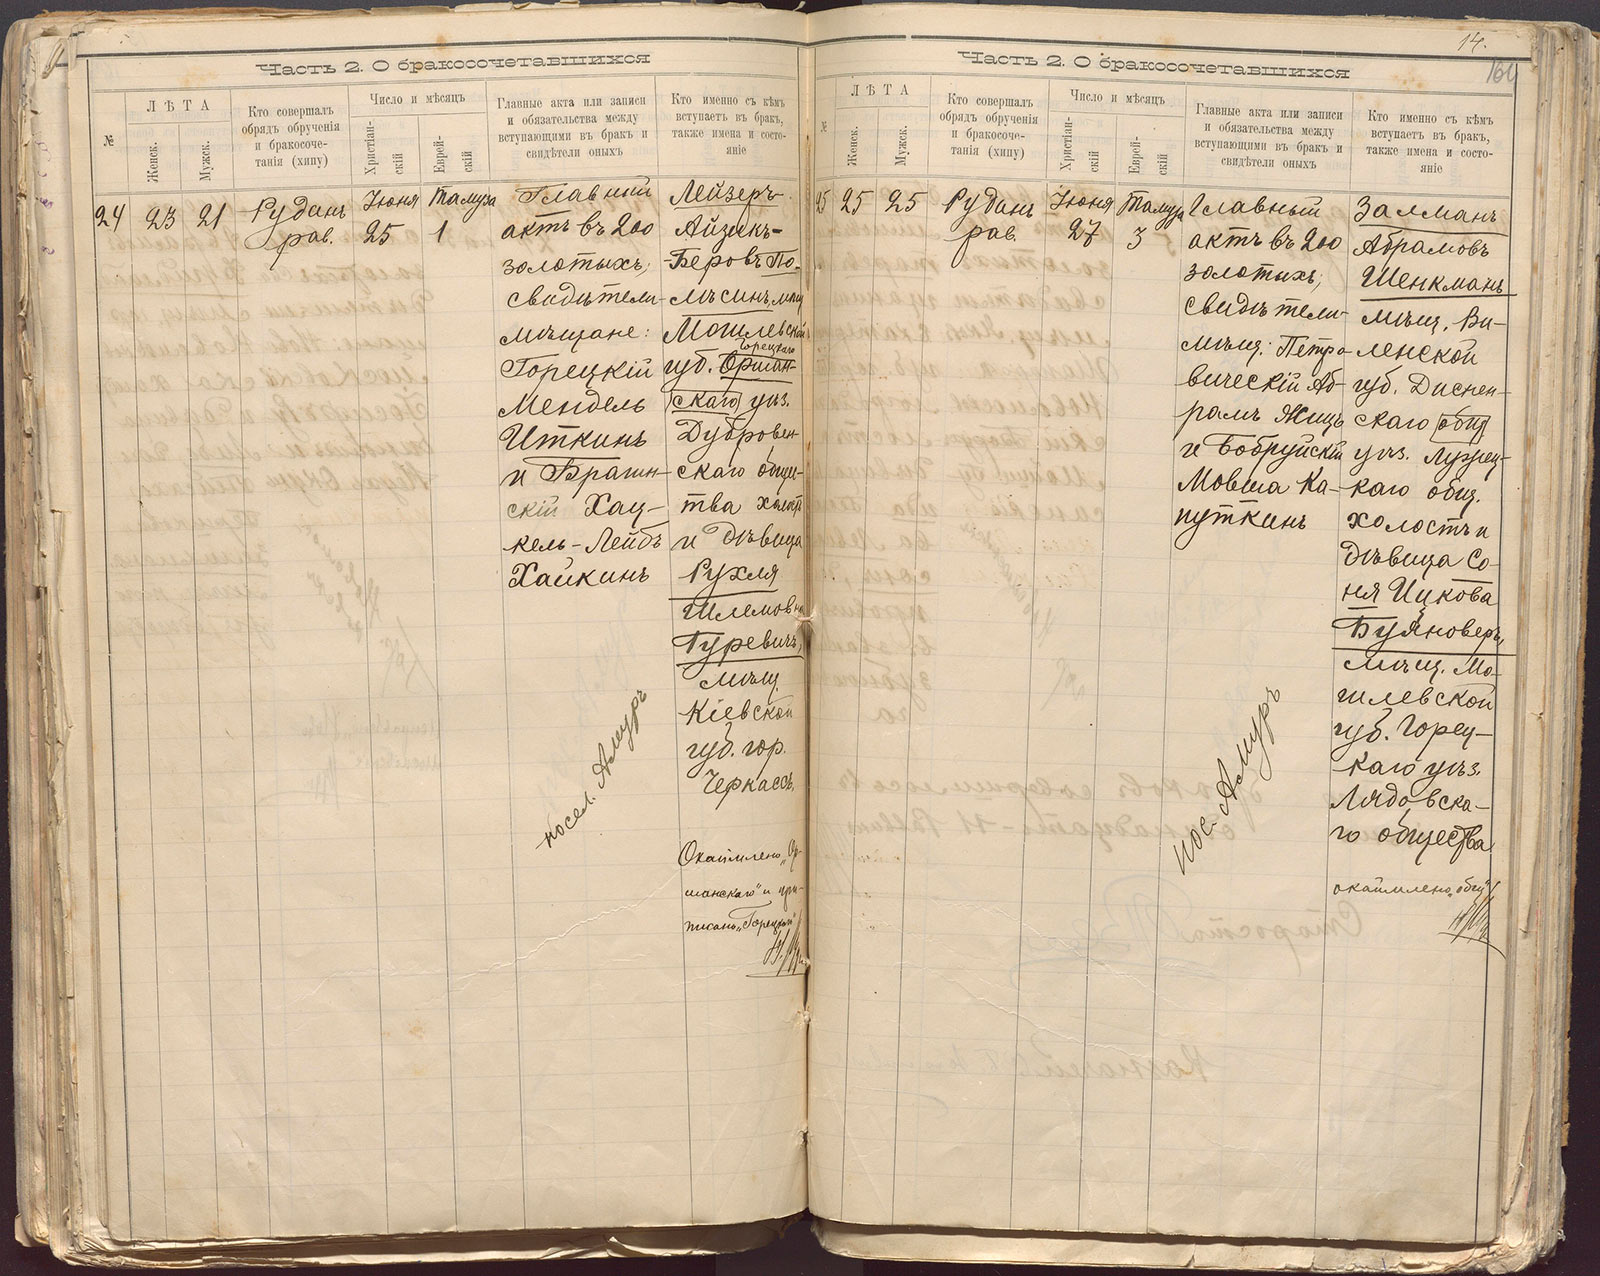 Часть 2. О бракосочетавшихся
№
ЛѢТА
Женск.
Мужск.
Кто совершалъ
обрядъ обрученія
и бракосоче-
танія (хипу)
Число и мѣсяцъ
Христіан-
скій
Еврей-
скій
Главные акта или записи
и обязательства между
вступающими въ бракъ и
свидѣтели оныхъ
Кто именно съ кѣмъ
вступаетъ въ бракъ,
также имена и состо-
яніе
24
23
21
Руданъ
рав.
Іюня
25
Тамуза
1
Главный
актъ въ 200
золотыхъ;
свидѣтели
мѣщане:
Горецкій
Мендель
Иткинъ
и Брагин-
скій Хац-
кель-Лейбъ
Хайкинъ
посел. Амуръ
Лейзеръ-
Айзикъ-
Беровъ По-
мѣсинъ, мѣщ
Могилевской
Горецкаго
губ. Оршан-
скаго уѣз.
Дубровен-
скаго общи-
тва холост
и дѣвица
Рухля
Шлемовна
Гуревичъ,
мѣщ.
Кіевской
губ. гор.
Черкассъ.
Окаймлено „Ор-
шанскаго" и при-
писано „Горецкаго"
14.
Часть 2. О бракосочетавшихся
№
ЛѢТА
Женск.
Мужск.
Кто совершалъ
обрядъ обрученія
и бракосоче-
танія (хипу)
Число и мѣсяцъ
Христіан-
скій
Еврей-
скій
Главные акта или записи
и обязательства между
вступающими въ бракъ и
свидѣтели оныхъ
Кто именно съ кѣмъ
вступаетъ въ бракъ,
также имена и состо-
яніе
25
25
25
Руданъ
рав.
Іюня
27
Тамуза
3
Главный
актъ въ 200
золотыхъ;
свидѣтели
мѣщ: Петро
вическій Аб-
рамъ Жицъ
и Бобруйскій
Мовша Ка-
путкинъ
пос. Амуръ
Залманъ
Абрамовъ
Шенкманъ
мѣщ. Ви-
ленской
губ. Диснен-
скаго общ
уѣз. Лужец-
каго общ.
холостъ и
дѣвица Со-
ня Ицкова
Буяноверъ,
мѣщ. Мо-
гилевской
губ. Горец-
каго уѣз.
Лядовска-
го общества
окаймлено „общ"